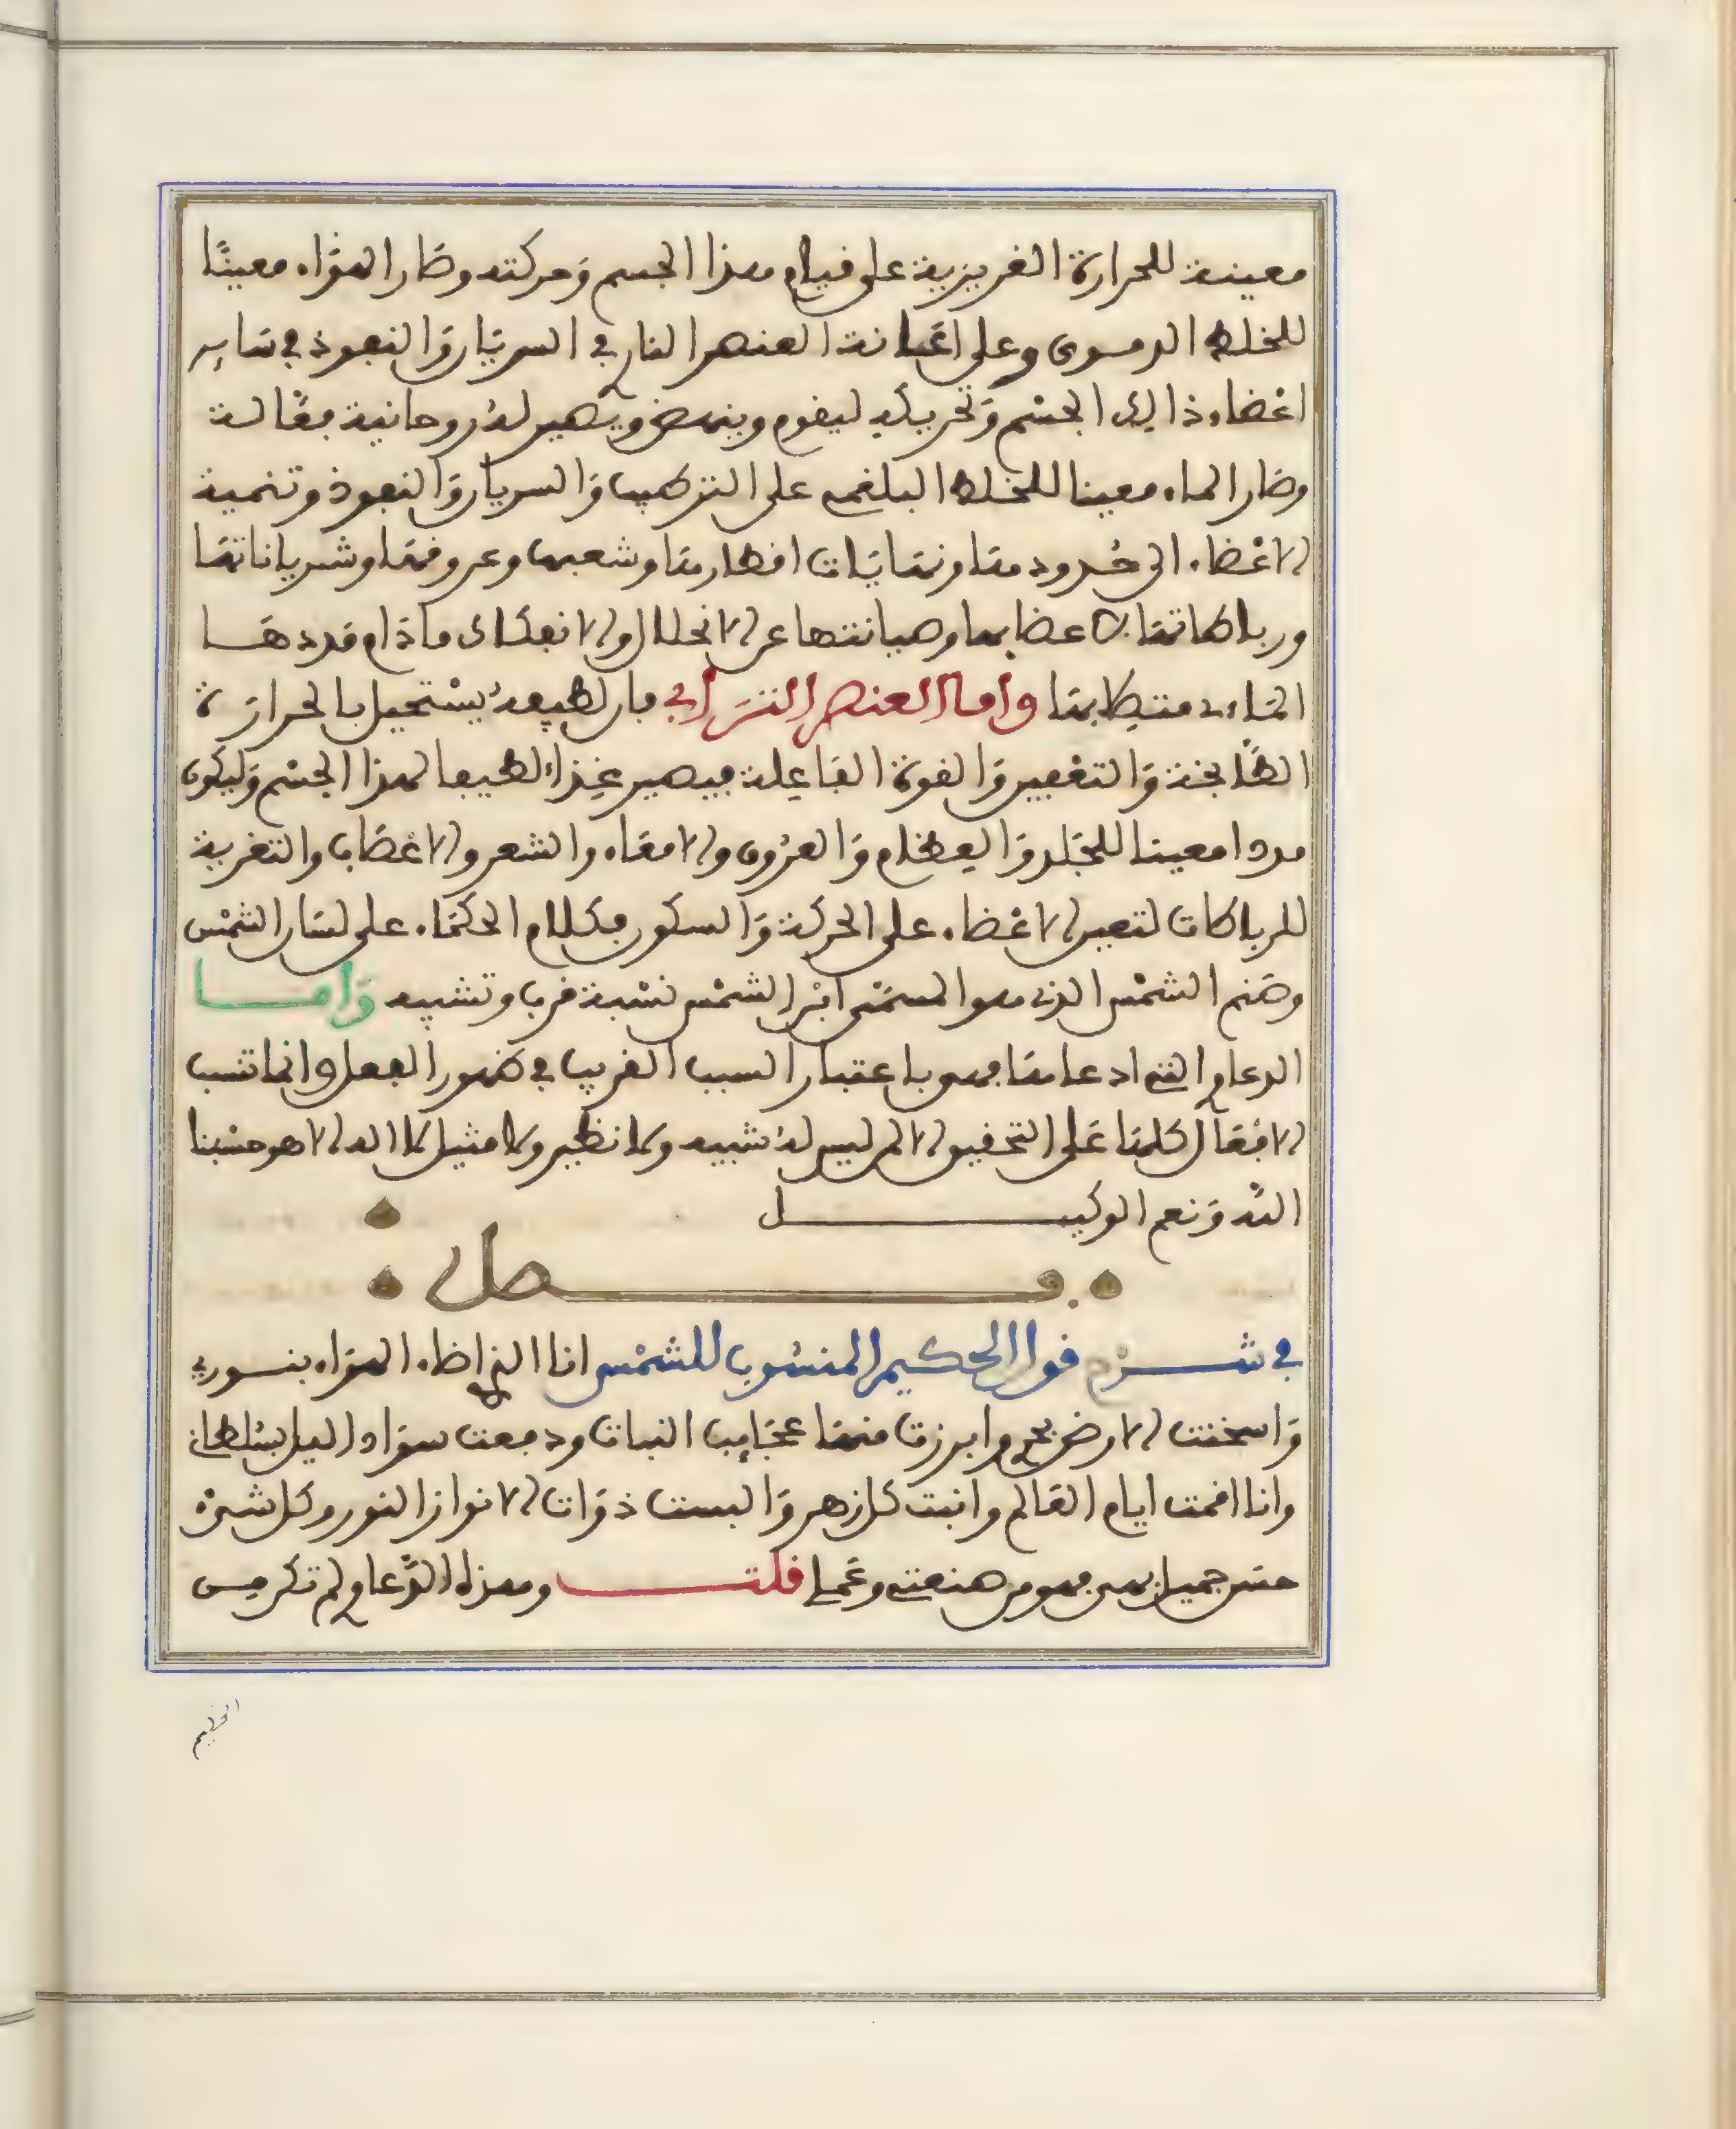 معينة للحرارة الغريزية على قيام هذا الجسم وَحركته وصَار الهوَاء معينًا
للخلط الدموى وعلى اعَانة العنصر النارى في السريَان وَالنفوذ في سَاير
اعْضاء ذالك الجسْم وَتحريكه ليقوم وينهض ويصير لهُ روحانية فعّالة
وصَار الماء معينا للخلط البلغمى على التركيب وَالسريان وَالنفوذ وتنمية
الاعْضاء الى حُدودها ونهايَات اقطارها وشعبها وعروقها وشرياناتها
ورباطاتها باعضابها وصيانتها عن الانحلال والانفكاك ماذام مددهَا
المَاءى متصلا بها وامـا العنصر الترَابى فان لطيفهُ يسْتحيل بالحرارَة
الطَّابخة وَالتغيير وَالقوة الفاعِلة فيصير غِذاءً لطيفا لهذا الجسْم وَليكون
مددا معينا للجَلد وَالعِظام وَالعرُوق والامعَاء والشعر والاعْصَاب والتغرية
للرباطات لتعين الاعْضاء على الحركة وَالسكون فكلام الحكمَاء على لسَان الشمْس
وصَنم الشمْس الذى هو المسمَّى ابْن الشمْس نسْبة قرب وتشبيه وَامـــا
الدعاوِ التى ادعاها فهو باعتبار السبب القريب في ظهور الفعل وانما تنسب
الافعَال كلها عَلى التحقيق لالمن ليس لهُ شبيه ولا نظير ولا مثيل لا اله الا هو حسْبنا
اللَّه وَنعم الوكيـــل
فـــصل
في شـــرْح قول الحكيم المنسُوب للشمْس انا الذى اضاء الهوَاء بنــورى
وَاسخنت الارض بحرى وابرزت منها عجَايب النبات ودفعت سوَاد اليل بسُلطانى
وانا اقمت ايام العَالم وانبت كل زهر وَالبست ذوَات الانوار النور وكل شىْء
حسَن جميل بهى فهو من صنعتى وعَملى قلتـــ وهذه الدَّعاوِ لم تكن من